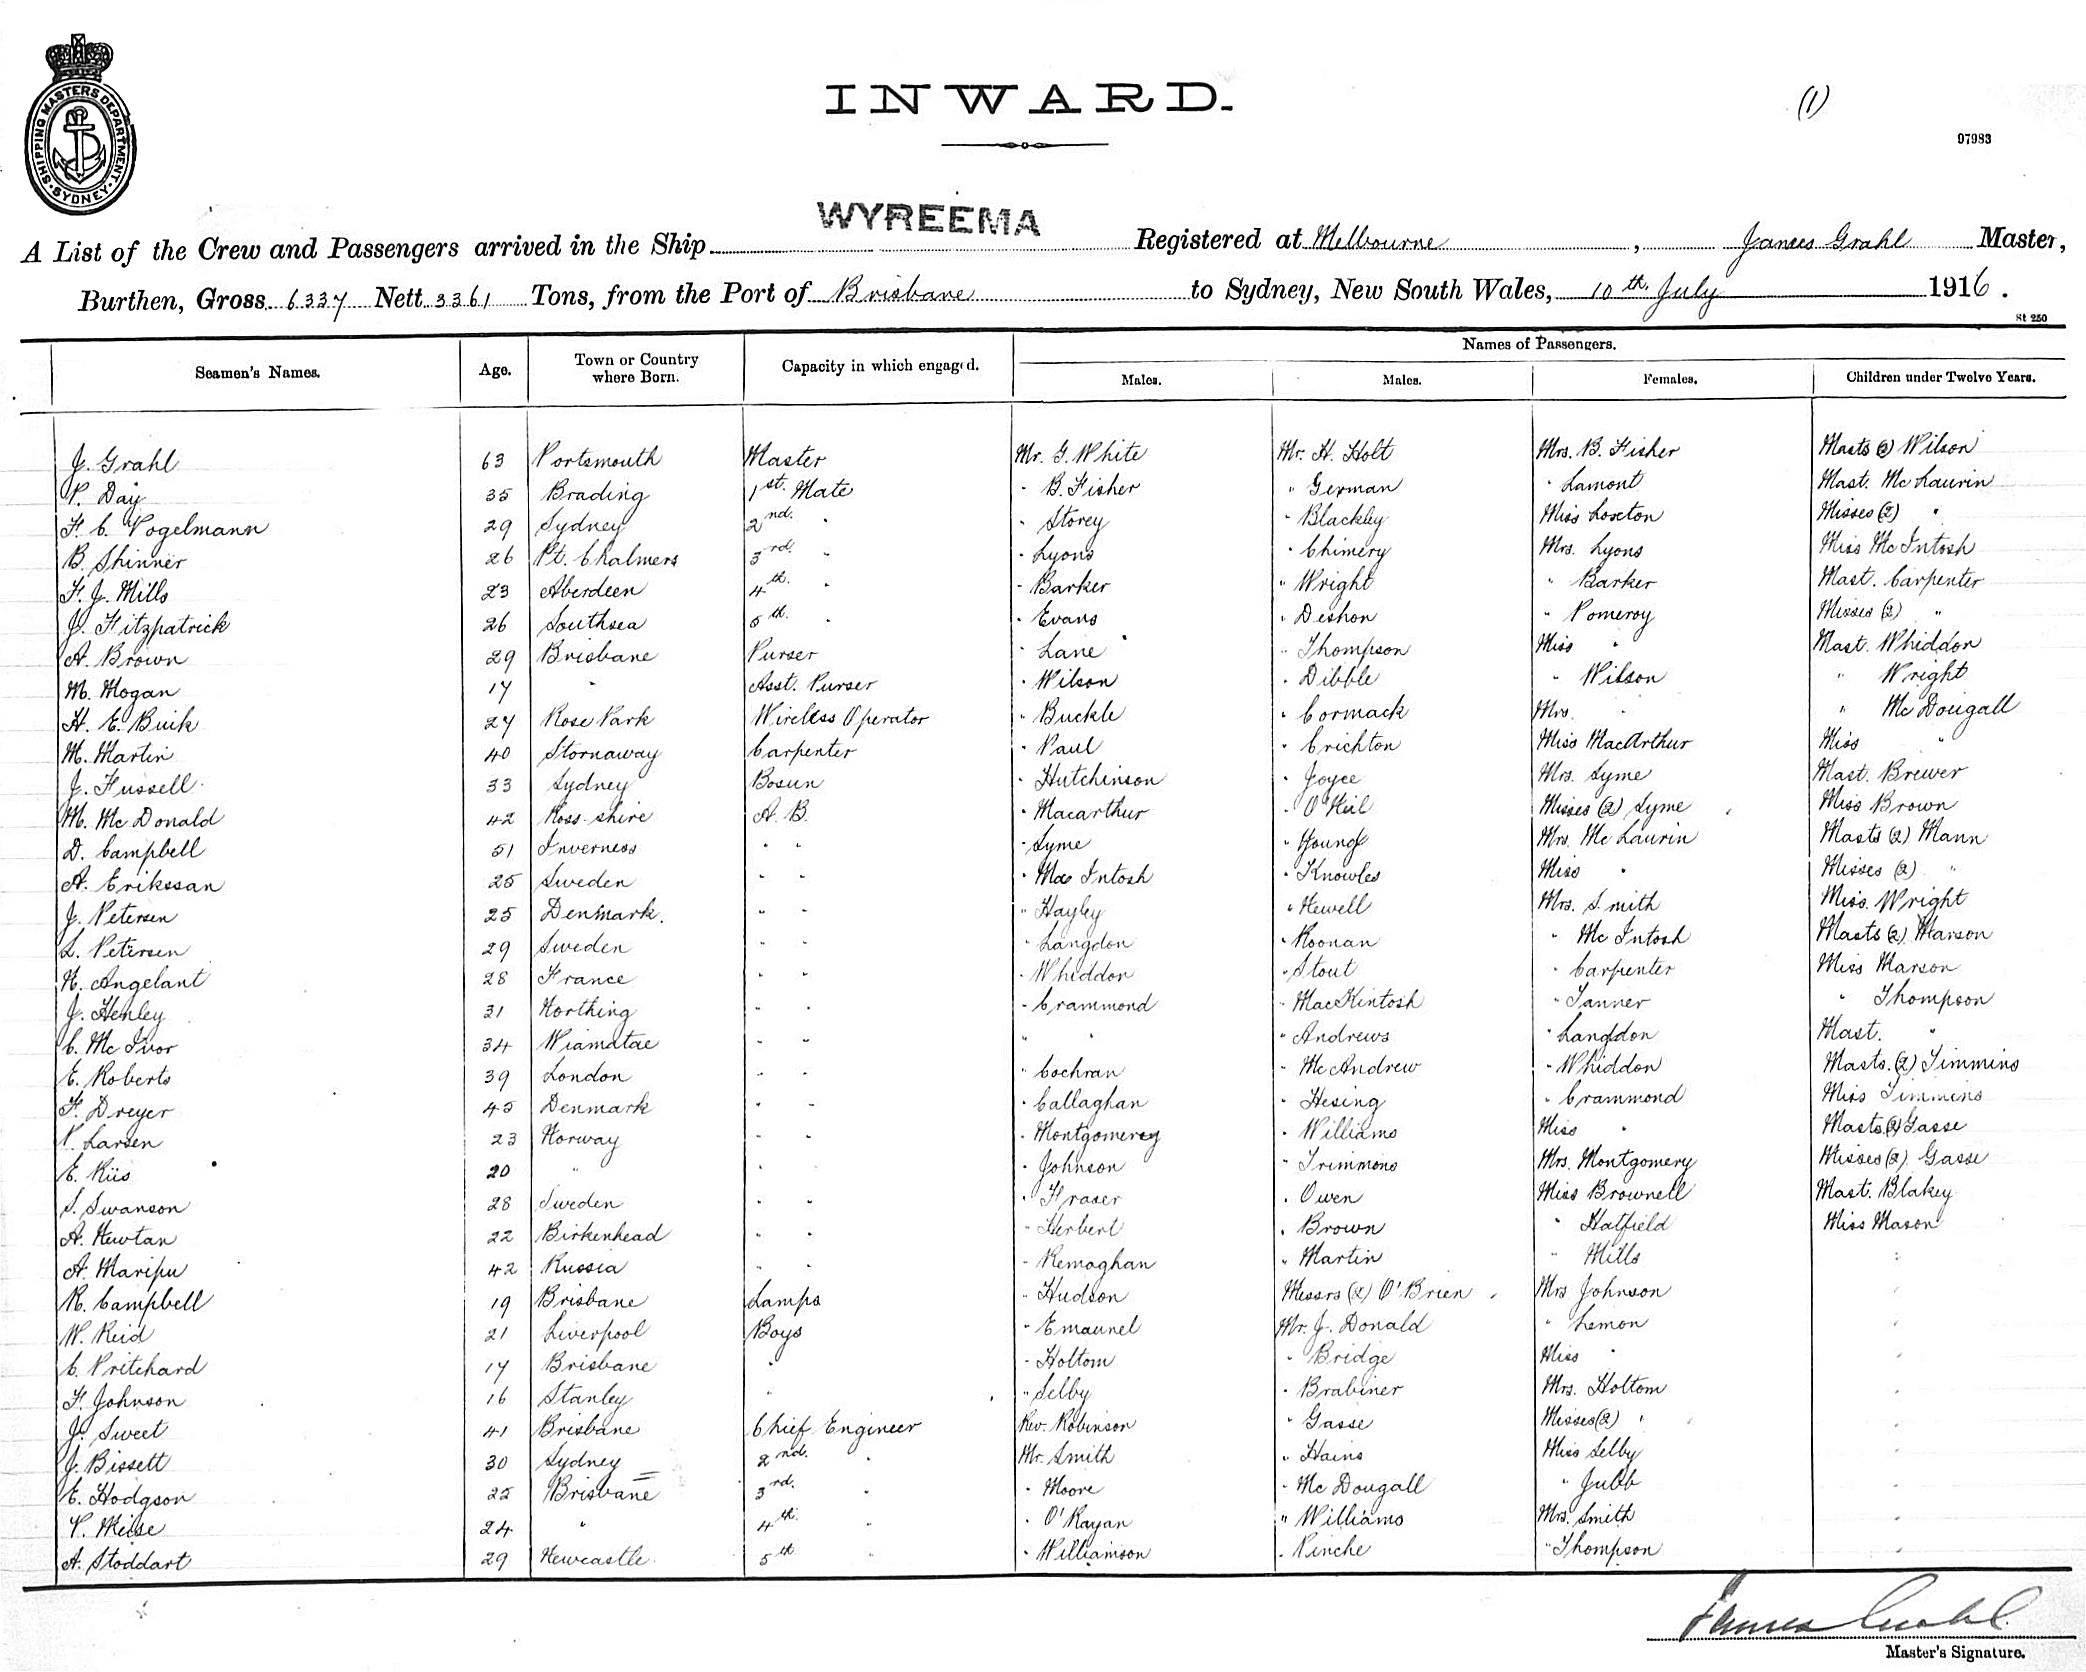 SHIPPING MASTERS DEPARTMENT · SYDNEY ·
INWARD.
(1)
97983
A List of the Crew and Passengers arrived in the Ship WYREEMA Registered at Melbourne, James Grahl Master,
Burthen, Gross 6337 Nett 3361 Tons, from the Port of Brisbane to Sydney, New South Wales, 10th July 1916.
St 250
Seamen's Names. Age. Town or Country where Born. Capacity in which engaged. Names of Passengers.
Males. Males. Females. Children under Twelve Years.
J. Grahl 63 Portsmouth Master Mr. G. White Mr. H. Holt Mrs. B. Fisher Masts (2) Wilson
P. Day 35 Brading 1st. Mate " B. Fisher " German " Lamont Mast. McLaurin
F. C. Vogelmann 29 Sydney 2nd. " " Storey " Blackley Miss Loxton Misses (2) "
B. Shinner 26 Pt. Chalmers 3rd. " " Lyons " Chimery Mrs. Lyons Miss McIntosh
F. J. Mills 23 Aberdeen 4th. " " Barker " Wright " Barker Mast. Carpenter
J. Fitzpatrick 26 Southsea 5th. " " Evans " Deshon " Pomeroy Misses (2) "
A. Brown 29 Brisbane Purser " Lane " Thompson Miss " Mast. Whiddon
M. Mogan 17 " Asst. Purser " Wilson " Dibble " Wilson " Wright
H. E. Buik 27 Rose Park Wireless Operator " Buckle " Cormack Mrs. " " McDougall
M. Martin 40 Stornaway Carpenter " Paul " Crichton Miss MacArthur Miss "
J. Fussell 33 Sydney Bosun " Hutchinson " Joyce Mrs. Syme Mast. Brewer
M. McDonald 42 Ross-shire A. B. " Macarthur " O'Neil Misses (2) Syme Miss Brown
D. Campbell 51 Inverness " " " Syme " Young Mrs. McLaurin Masts (2) Mann
A. Erikssan 25 Sweden " " " MacIntosh " Knowles Miss " Misses (2) "
J. Petersen 25 Denmark. " " " Hayley " Newell Mrs. Smith Miss. Wright
L. Petersen 29 Sweden " " " Langdon " Noonan " McIntosh Masts (2) Marson
N. Angelant 28 France " " " Whiddon " Stout " Carpenter Miss Marson
J. Henley 31 Northing " " " Crammond " MacKintosh " Tanner " Thompson
C. McIvor 34 Wiamatae " " " " " Andrews " Langdon Mast. "
E. Roberts 39 London " " " Cochran " McAndrew " Whiddon Masts. (2) Timmins
F. Dreyer 45 Denmark " " " Callaghan " Hesing " Crammond Miss Timmins
P. Larsen 23 Norway " " " Montgomerey " Williams Miss " Masts (2) Gasse
E. Riis 20 " " " " Johnson " Trimmons Mrs. Montgomery Misses (2) Gasse
S. Swanson 28 Sweden " " " Fraser " Owen Miss Brownell Mast. Blakey
A. Newtan 22 Birkenhead " " " Herbert " Brown " Hatfield Miss Mason
A. Maripu 42 Russia " " " Kemaghan " Martin " Mills
R. Campbell 19 Brisbane Lamps " Hudson Messrs (2) O'Brien Mrs Johnson
W. Reid 21 Liverpool Boys " Emaunel Mr. J. Donald " Lemon
C. Pritchard 17 Brisbane " " Holtom " Bridge Miss "
F. Johnson 16 Stanley " " Selby " Brabiner Mrs. Holtom
J. Sweet 41 Brisbane Chief Engineer Rev. Robinson " Gasse Misses (2) "
J. Bissett 30 Sydney 2nd. " Mr. Smith " Hains Miss Selby
E. Hodgson 25 Brisbane 3rd. " " Moore " McDougall " Jubb
P. Meise 24 " 4th. " " O'Rayan " Williams Mrs. Smith
A. Stoddart 29 Newcastle. 5th " " Williamson " Pinche " Thompson
James Grahl.
Master's Signature.